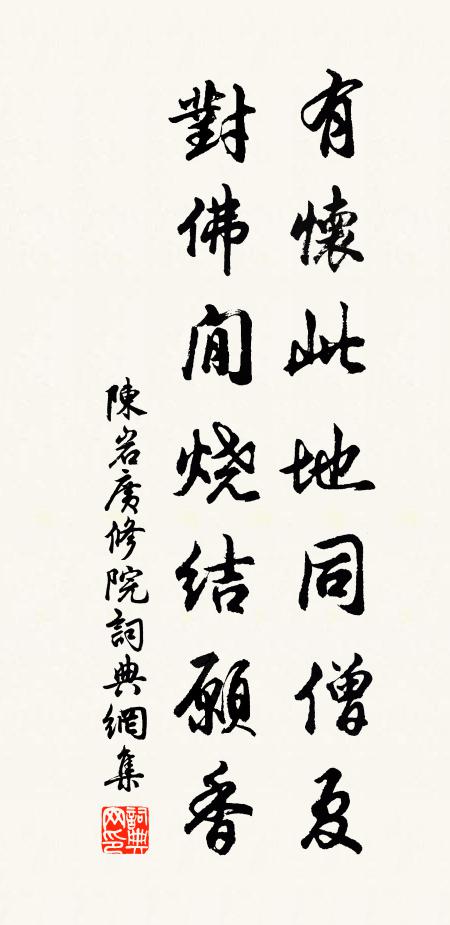 有懷此地同僧夏
對佛閒烧結願香
陳岩廣修院詞典網集
詞典网印